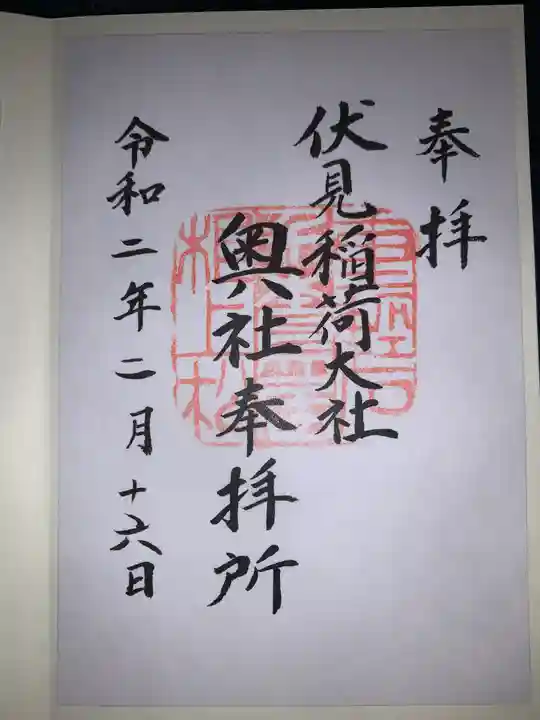 奉拝
伏見稲荷大社
奥社奉拝所
令和二年二月十六日